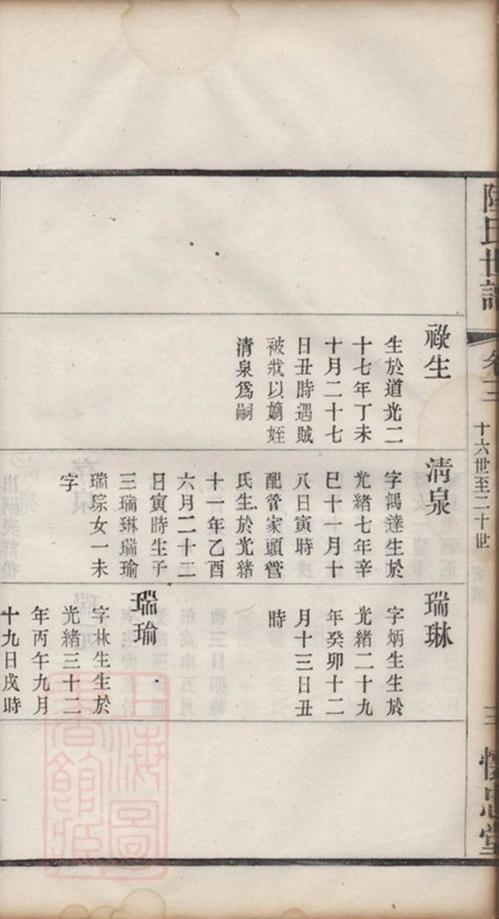 陸氏世譜
卷三
十六世至二十世
三
懷忠堂
祿生
生於道光二
十七年丁未
十月二十七
日丑時遇賊
被戕以嫡姪
清泉爲嗣
清泉
字鴻達生於
光緒七年辛
巳十一月十
八日寅時
配管家頭管
氏生於光緒
十一年乙酉
六月二十二
日寅時生子
三瑞琳瑞瑜
瑞琮女一未
字
瑞琳
字炳生生於
光緒二十九
年癸卯十二
月十三日丑
時
瑞瑜
字林生生於
光緒三十二
年丙午九月
十九日戌時
上海圖
書館藏